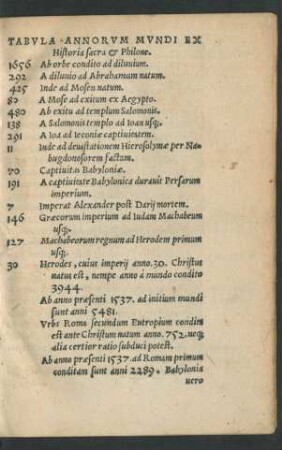 TABVLA ANNORVM MVNDI EX
Historia sacra & Philone.
1656 Ab orbe condito ad diluuium.
292 A diluuio ad Abrahamum natum.
425 Inde ad Mosen natum.
80 A Mose ad exitum ex Aegypto.
480 Ab exitu ad templum Salomonis.
138 A Salomonis templo ad Ioas usq;.
291 A Ioa ad Ieconiæ captiuitatem.
11 Inde ad deuastationem Hierosolymæ per Na-
bugdonosorem factam.
70 Captiuitas Babyloniæ.
191 A captiuitate Babylonica durauit Persarum
imperium.
7 Imperat Alexander post Darij mortem.
146 Græcorum imperium ad Iudam Machabeum
usq;.
127 Machabeorum regnum ad Herodem primum
usq;.
30 Herodes, cuius imperij anno. 30. Christus
natus est, nempe anno à mundo condito
3944.
Ab anno præsenti 1537. ad initium mundi
sunt anni 5481.
Vrbs Roma secundum Eutropium condita
est ante Christum natum anno. 752. neq;
alia certior ratio subduci potest.
Ab anno præsenti 1537. ad Romam primum
conditam sunt anni 2289. Babylonia
uero